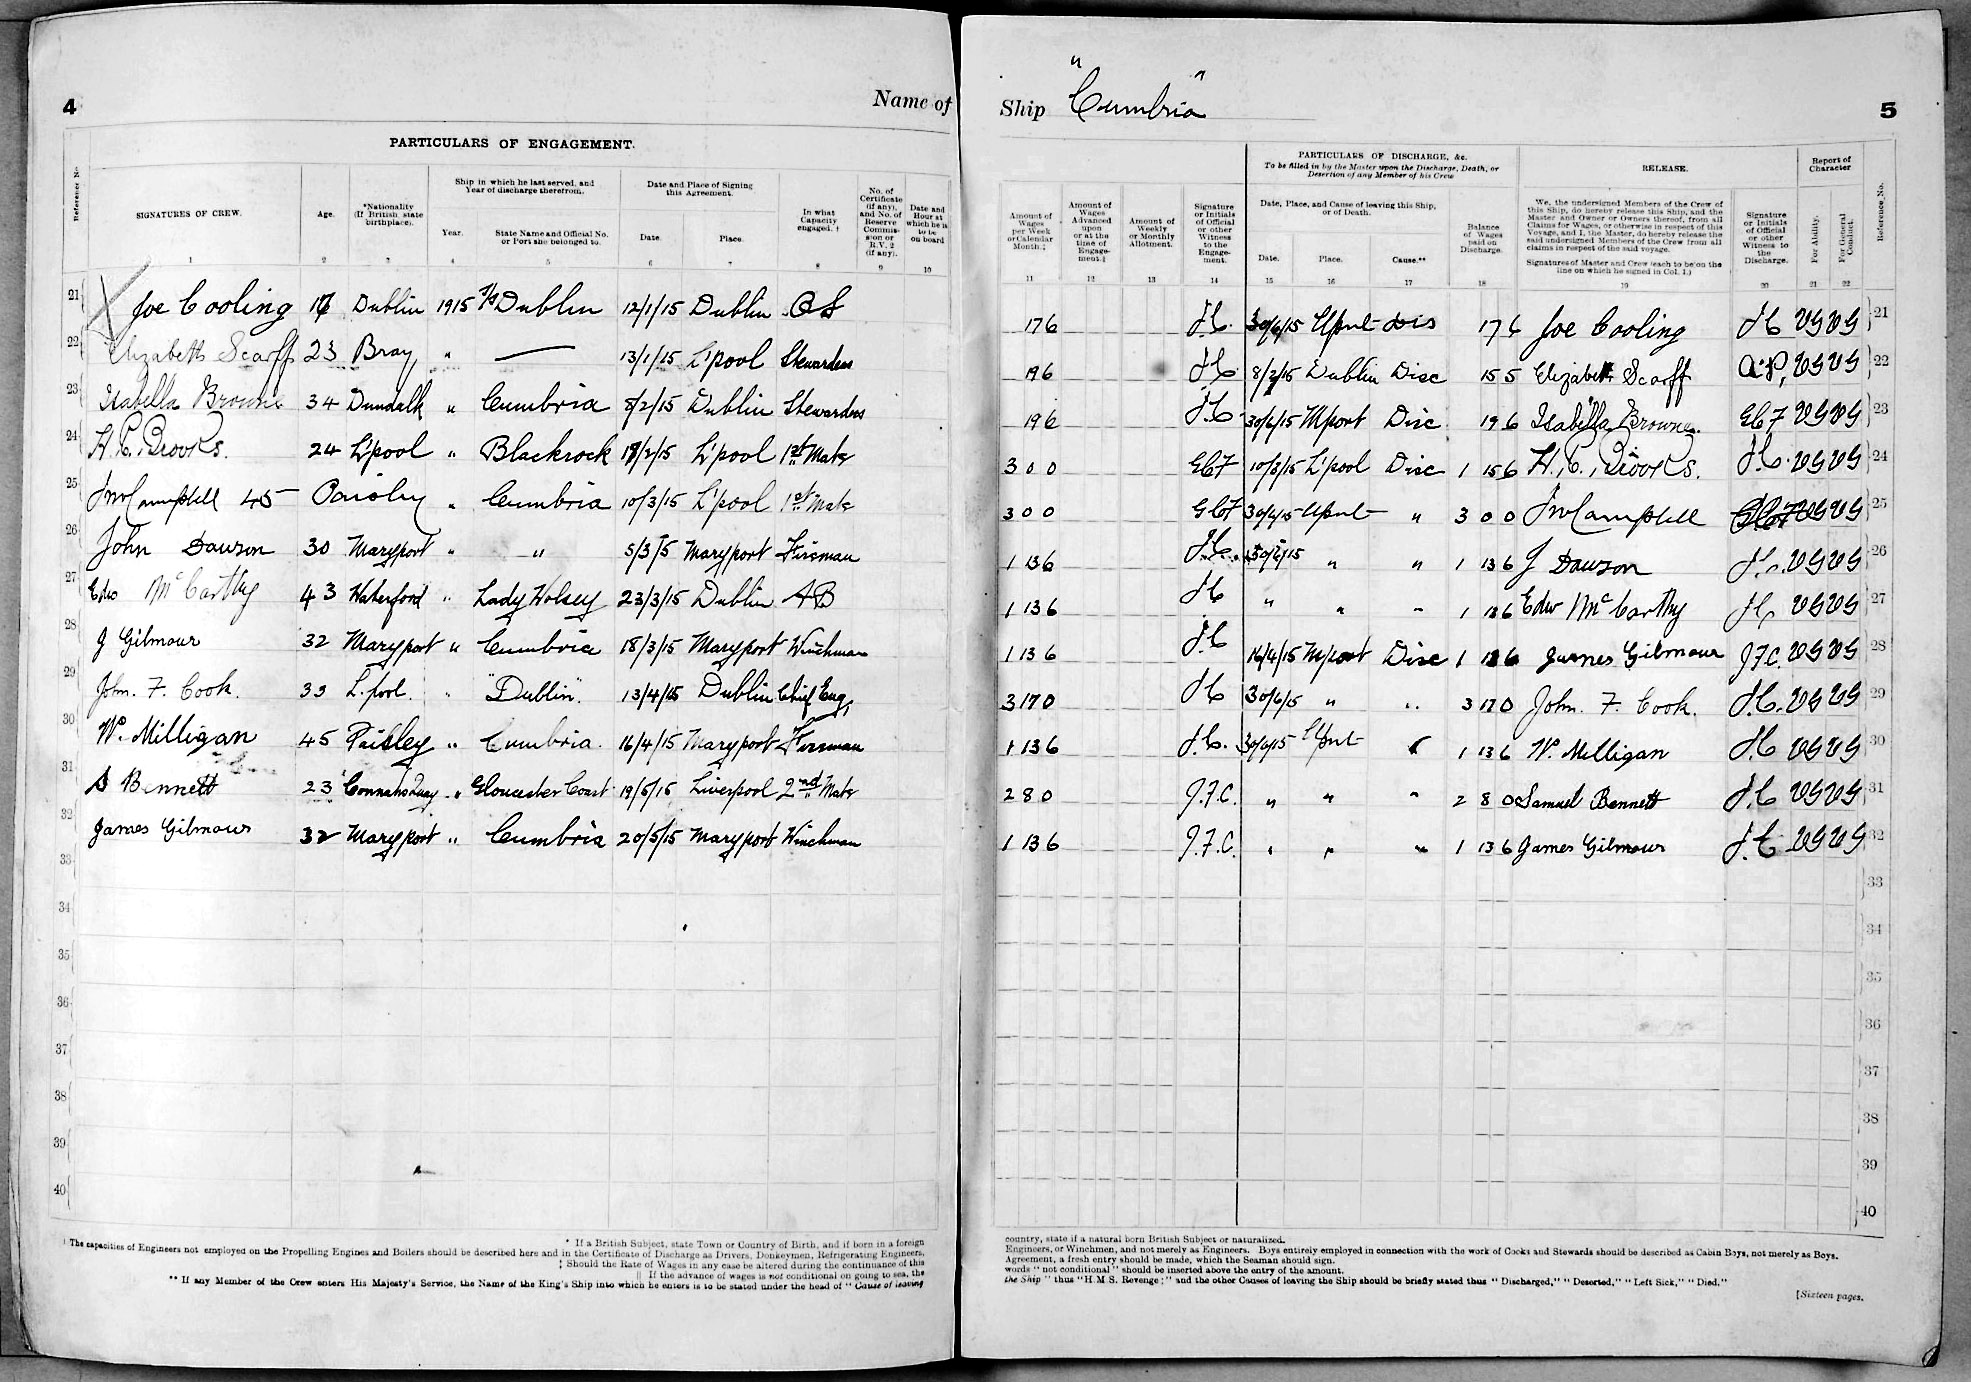 4
Name of
PARTICULARS OF ENGAGEMENT.
Reference No.
SIGNATURES OF CREW.
Age.
*Nationality (If British state birthplace).
Ship in which he last served, and Year of discharge therefrom.
Year.
State Name and Official No. or Port she belonged to.
Date and Place of Signing this Agreement.
Date.
Place.
In what Capacity engaged. †
No. of Certificate (if any), and No. of Reserve Commission or R.V. 2 (if any).
Date and Hour at which he is to be on board
1 2 3 4 5 6 7 8 9 10
21 Joe Cooling Dublin 1915 Dublin 12/1/15 Dublin OS
22 Elizabeth Scarff 23 Bray " 13/1/15 L'pool Stewardess
23 Isabella Browne 34 Dundalk " Cumbria 8/2/15 Dublin Stewardess
24 H. C. Brooks. 24 L'pool " Blackrock /2/15 L'pool 1st Mate
25 Jn Campbell 45 Paisley " Cumbria 10/3/15 L'pool 1st Mate
26 John Dawson 30 Maryport " " 5/3/15 Maryport Fireman
27 Edw McCarthy 43 Waterford " Lady Wolsey 23/3/15 Dublin AB
28 J Gilmour 32 Maryport " Cumbria 18/3/15 Maryport Winchman
29 John. F. Cook. 33 L.pool. " "Dublin". 13/4/15 Dublin Chief Eng,
30 W. Milligan 45 Paisley " Cumbria. 16/4/15 Maryport Fireman
31 S Bennett 23 Connahs Quay " Gloucester Coast 19/5/15 Liverpool 2nd Mate
32 James Gilmour 32 Maryport " Cumbria 20/5/15 Maryport Winchman
33
34
35
36
37
38
39
40
* If a British Subject, state Town or Country of Birth, and if born in a foreign
† The capacities of Engineers not employed on the Propelling Engines and Boilers should be described here and in the Certificate of Discharge as Drivers, Donkeymen, Refrigerating Engineers,
‡ Should the Rate of Wages in any case be altered during the continuance of this
|| If the advance of wages is not conditional on going to sea, the
** If any Member of the Crew enters His Majesty's Service, the Name of the King's Ship into which he enters is to be stated under the head of "Cause of leaving
Ship "Cumbria"
5
Amount of Wages per Week or Calendar Month ‡
Amount of Wages Advanced upon or at the time of Engagement.‖
Amount of Weekly or Monthly Allotment.
Signature or Initials of Official or other Witness to the Engagement.
PARTICULARS OF DISCHARGE, &c.
To be filled in by the Master upon the Discharge, Death, or Desertion of any Member of his Crew
Date, Place, and Cause of leaving this Ship, or of Death.
Date.
Place.
Cause.**
Balance of Wages paid on Discharge.
RELEASE.
We, the undersigned Members of the Crew of this Ship, do hereby release this Ship, and the Master and Owner or Owners thereof, from all Claims for Wages, or otherwise in respect of this Voyage, and I, the Master, do hereby release the said undersigned Members of the Crew from all claims in respect of the said voyage.
Signatures of Master and Crew (each to be on the line on which he signed in Col. 1.)
Signature or Initials of Official or other Witness to the Discharge.
Report of Character
For Ability.
For General Conduct.
Reference No.
11 12 13 14 15 16 17 18 19 20 21 22
17 6 J.C. 30/6/15 dis 17 6 Joe Cooling J C VG VG 21
19 6 J C 8/2/15 Dublin Disc 15 5 Elizabeth Scarff A.P, VG VG 22
19 6 J.C 30/6/15 M'port Disc 19 6 Isabella Browne. VG VG 23
3 0 0 10/3/15 L'pool Disc 1 15 6 H. C. Brooks. J.C. VG VG 24
3 0 0 " 3 0 0 Jn Campbell VG VG 25
1 13 6 J.C. 30/6/15 " " 1 13 6 J Dawson J.C. VG VG 26
1 13 6 J C " " " 1 13 6 Edw McCarthy J C VG VG 27
1 13 6 J.C 16/4/15 M'port Disc 1 6 James Gilmour J.F.C. VG VG 28
3 17 0 J C 30/6/15 " " 3 17 0 John. F. Cook. J.C. VG VG 29
1 13 6 J.C. 30/6/15 " 1 13 6 W. Milligan J.C VG VG 30
2 8 0 J.F.C. " " " 2 8 0 Samuel Bennett J.C VG VG 31
1 13 6 J.F.C. " " " 1 13 6 James Gilmour J.C VG VG 32
33
34
35
36
37
38
39
40
country, state if a natural born British Subject or naturalized.
Engineers, or Winchmen, and not merely as Engineers. Boys entirely employed in connection with the work of Cooks and Stewards should be described as Cabin Boys, not merely as Boys.
Agreement, a fresh entry should be made, which the Seaman should sign.
words "not conditional" should be inserted above the entry of the amount.
the Ship" thus "H.M.S. Revenge;" and the other Causes of leaving the Ship should be briefly stated thus "Discharged," "Deserted," "Left Sick," "Died."
[Sixteen pages.